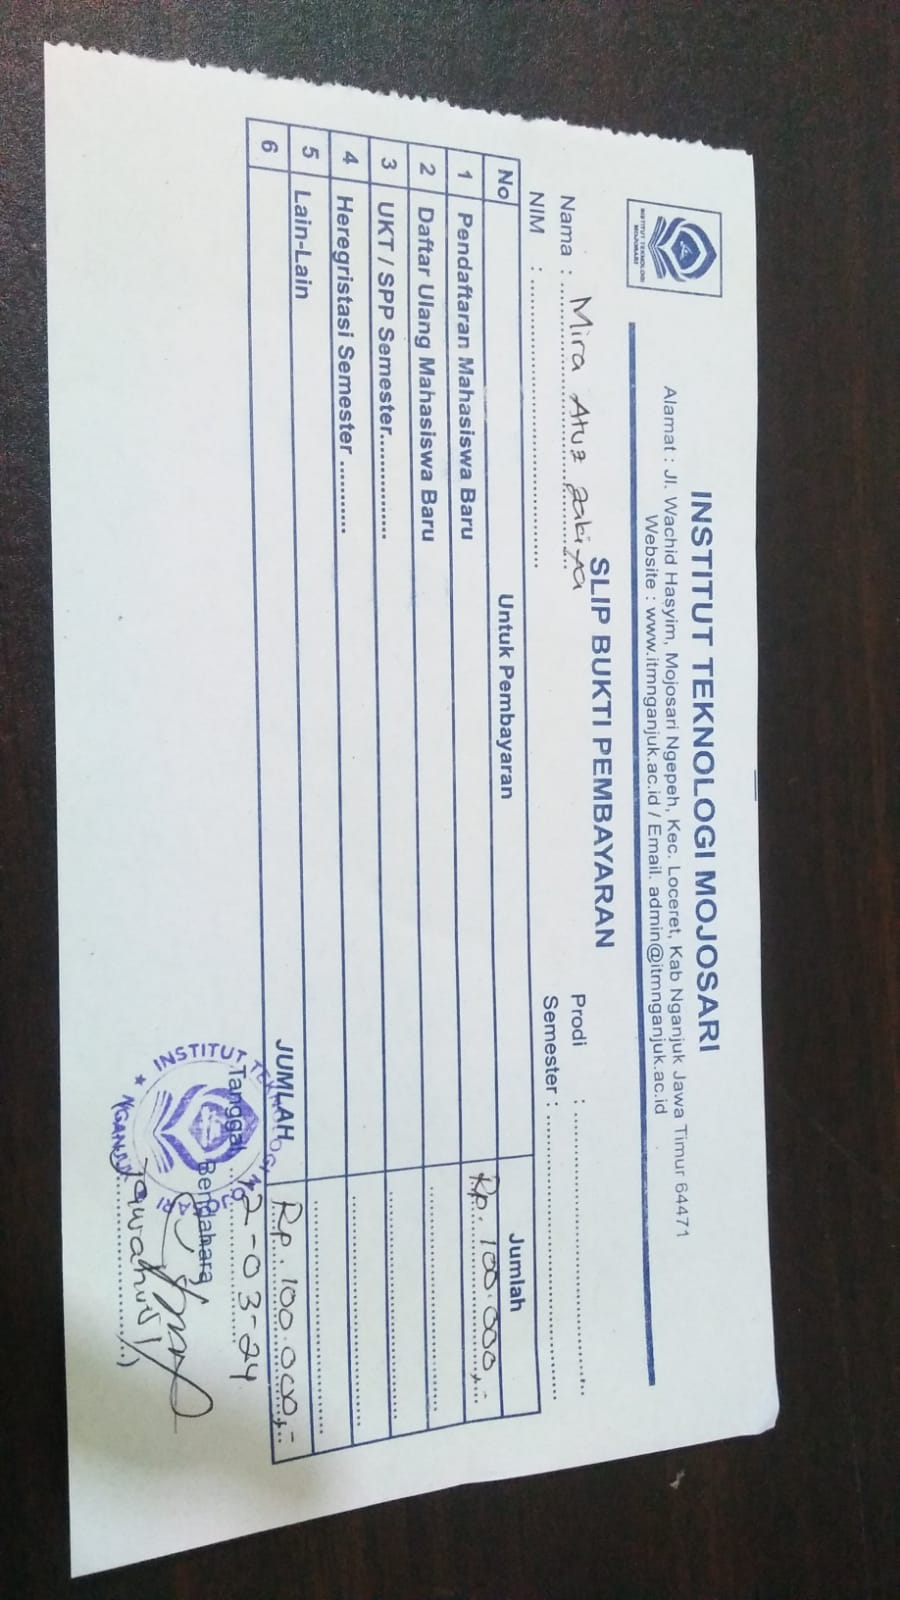 INSTITUT TEKNOLOGI MOJOSARI
INSTITUT TEKNOLOGI MOJOSARI
Alamat : Jl. Wachid Hasyim, Mojosari Ngepeh, Kec. Loceret, Kab Nganjuk Jawa Timur 64471
Website : www.itmnganjuk.ac.id / Email. admin@itmnganjuk.ac.id
SLIP BUKTI PEMBAYARAN
Nama : Mira Atuz Zakiya Prodi : ..............................
NIM : .............................. Semester : ..............................
No Untuk Pembayaran Jumlah
1 Pendaftaran Mahasiswa Baru Rp. 100.000,-
2 Daftar Ulang Mahasiswa Baru ..............................
3 UKT / SPP Semester.............. ..............................
4 Heregristasi Semester ........... ..............................
5 Lain-Lain ..............................
6 JUMLAH Rp. 100.000,-
Tanggal 2-03-24
Bendahara
INSTITUT TEKNOLOGI MOJOSARI
NGANJUK